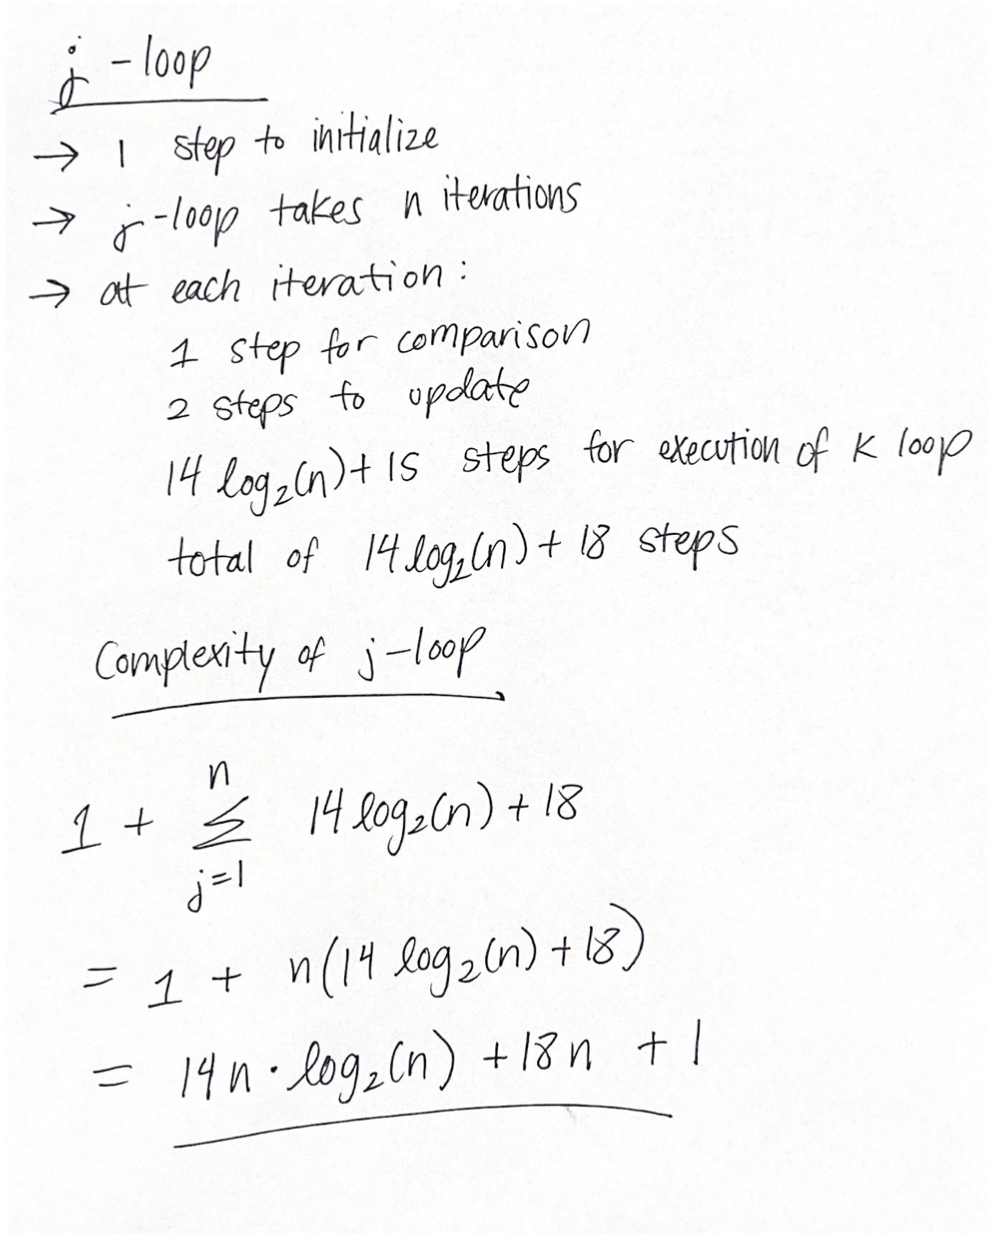 j - loop
→ 1 step to initialize
→ j-loop takes n iterations
→ at each iteration:
1 step for comparison
2 steps to update
14 log₂(n) + 15 steps for execution of k loop
total of 14 log₂(n) + 18 steps
Complexity of j-loop
1 + n∑j=1 14 log₂(n) + 18
= 1 + n(14 log₂(n) + 18)
= 14n · log₂(n) + 18n + 1